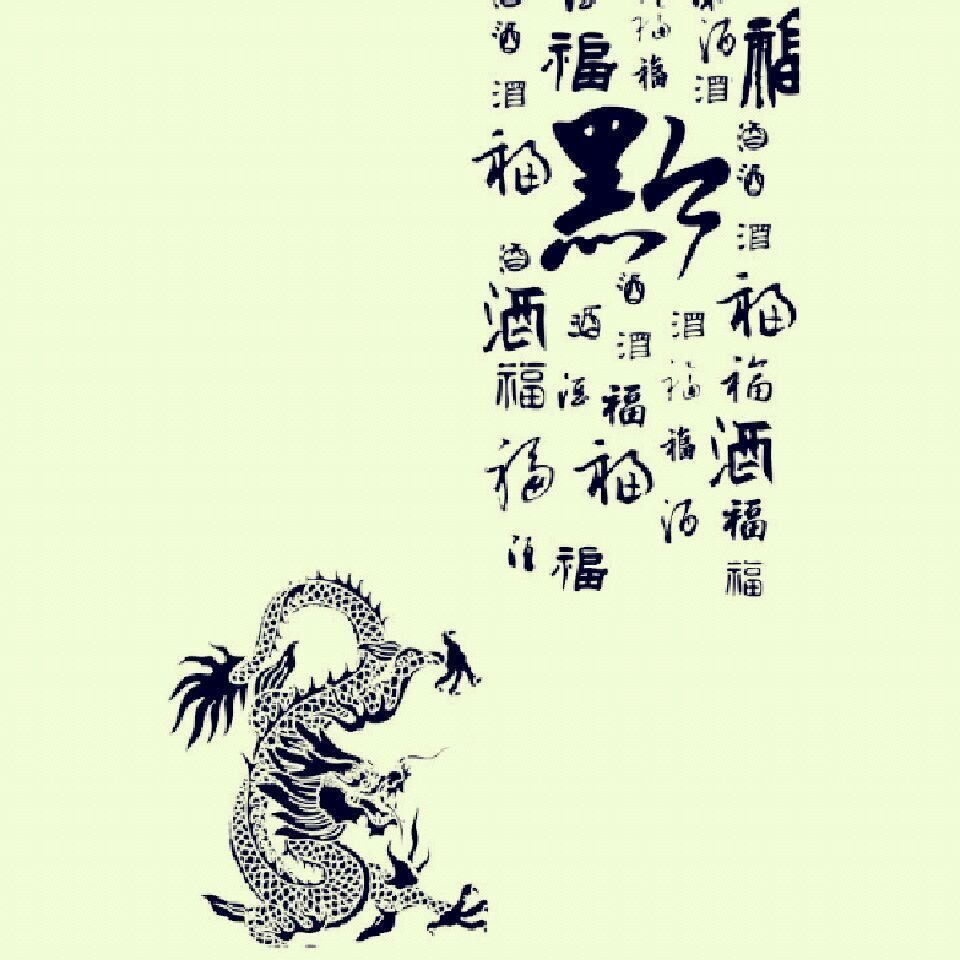 酒 福 福 酒 福
酒 福 酒
福 黔 酒
酒
酒
酒
酒 福
酒 酒 酒
酒
福 酒 福 福 福
福 酒
福 福
酒 福
酒 福
福